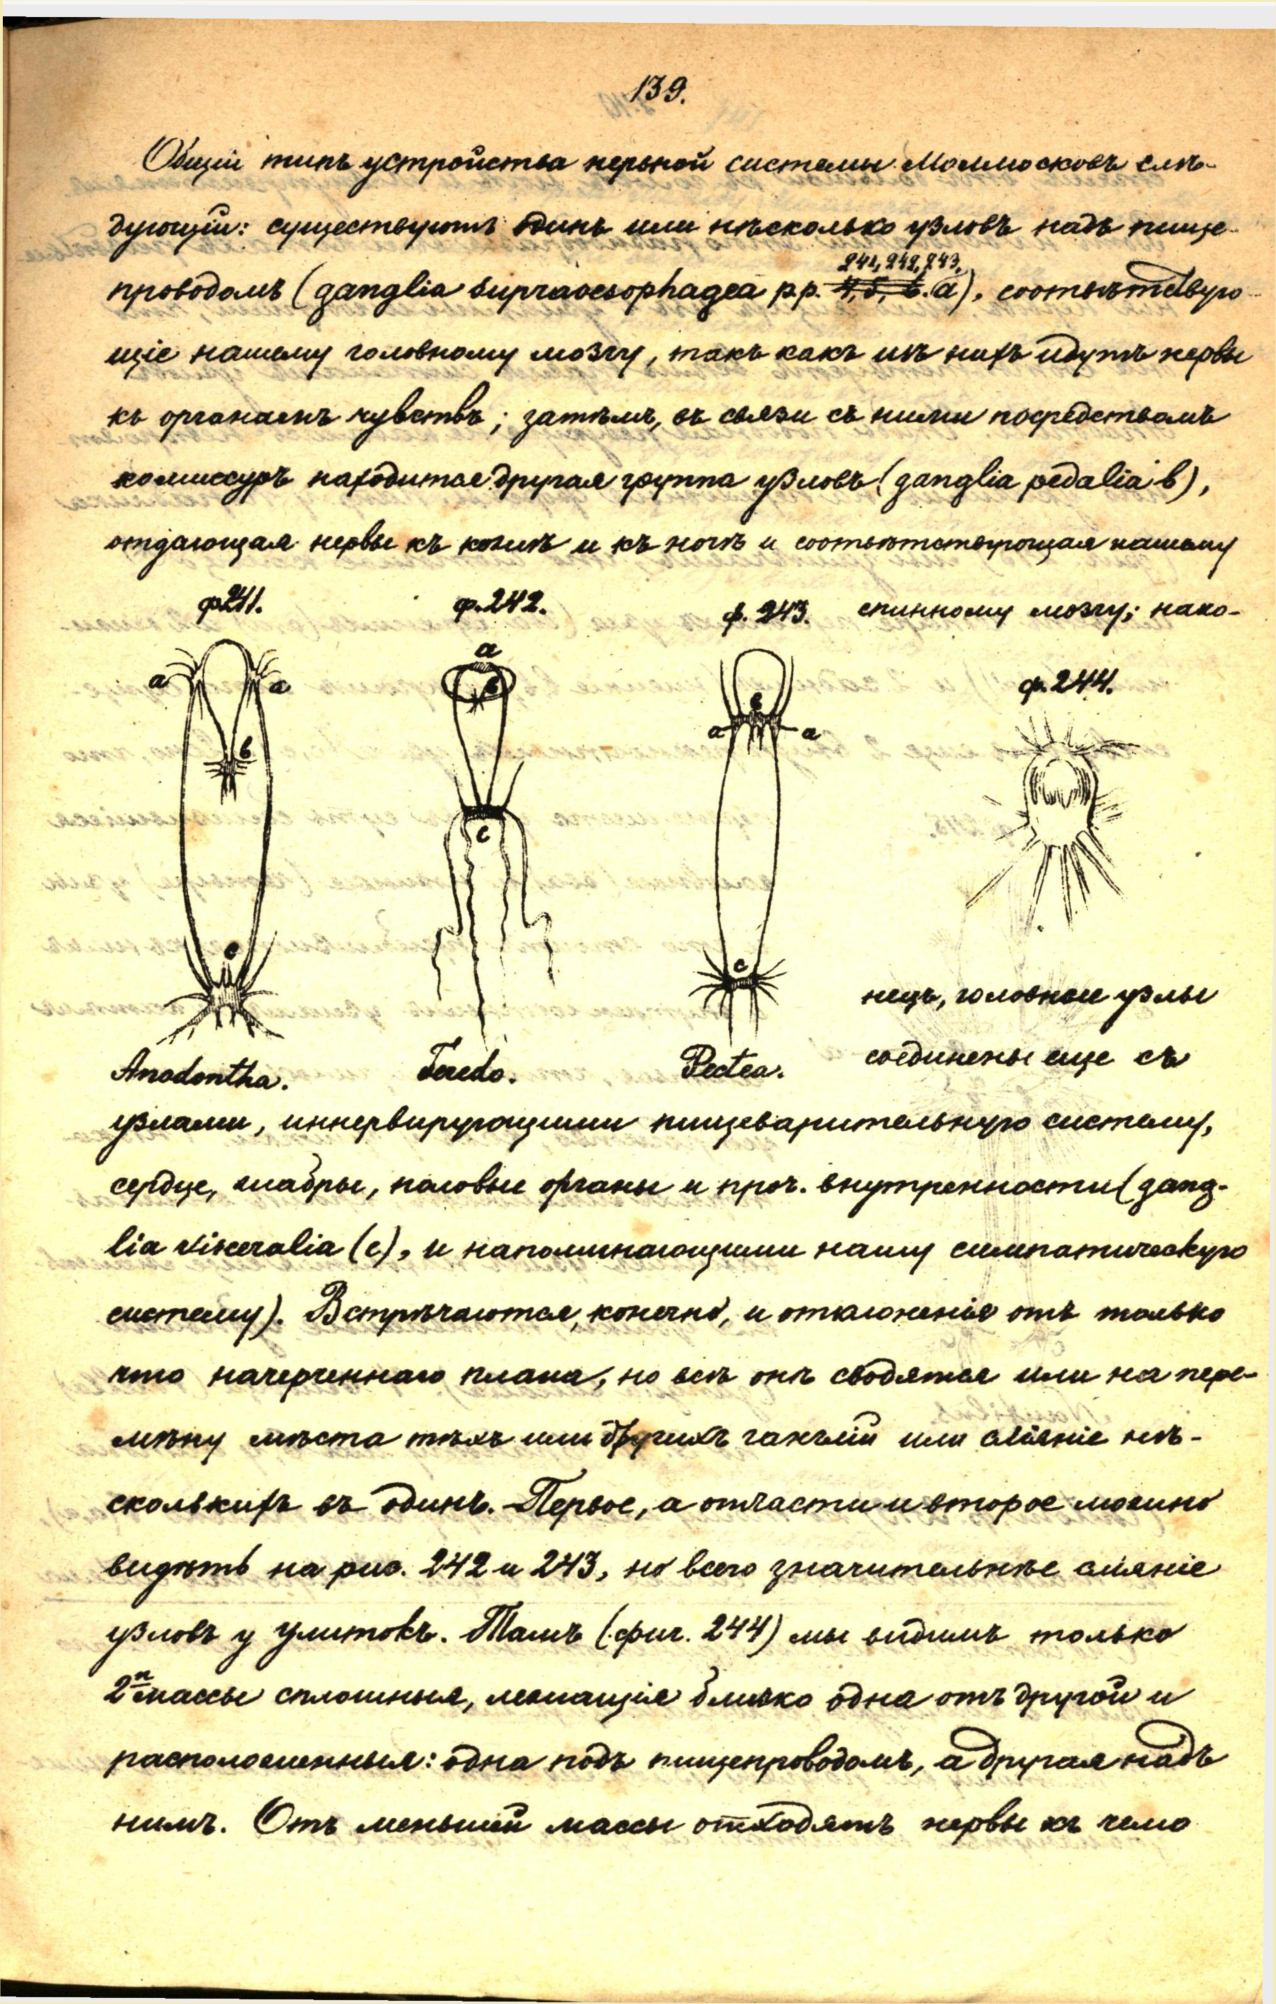 139.
Общій типъ устройства нервной системы Моллюсковъ слѣ-
дующій: существуютъ одинъ или нѣсколько узловъ надъ пище-
241, 242, 243.
проводомъ (ganglia supraoesophagea pp. 4, 5, 6. a), соотвѣтствую-
щіе нашему головному мозгу, такъ какъ изъ нихъ идутъ нервы
къ органамъ чувствъ; затѣмъ, въ связи съ ними посредствомъ
комиссуръ находится другая группа узловъ (ganglia pedalia b),
отдающая нервы къ кожѣ и къ ногѣ и соотвѣтствующая нашему
ф. 241. ф. 242. ф. 243. спинному мозгу; нако-
ф. 244.
a a b c
a b c
b a a c
нецъ, головные узлы
соединены еще съ
Anodontha. Teredo. Pectea.
узлами, иннервирующими пищеварительную систему,
сердце, жабры, половые органы и проч. внутренности (gang-
lia visceralia (c), и напоминающими нашу симпатическую
систему). Встрѣчаются, конечно, и отклоненія отъ только
что начерченнаго плана, но всѣ онѣ сводятся или на пере-
мѣну мѣста тѣхъ или другихъ ганглій или сліяніе нѣ-
сколькихъ въ одинъ. Первое, а отчасти и второе можно
видѣть на рис. 242 и 243, но всего значительнѣе сліяніе
узловъ у улитокъ. Тамъ (фиг. 244) мы видимъ только
2 массы сплошныя, лежащія близко одна отъ другой и
расположенныя: одна подъ пищепроводомъ, а другая надъ
нимъ. Отъ меньшей массы отходятъ нервы къ чело